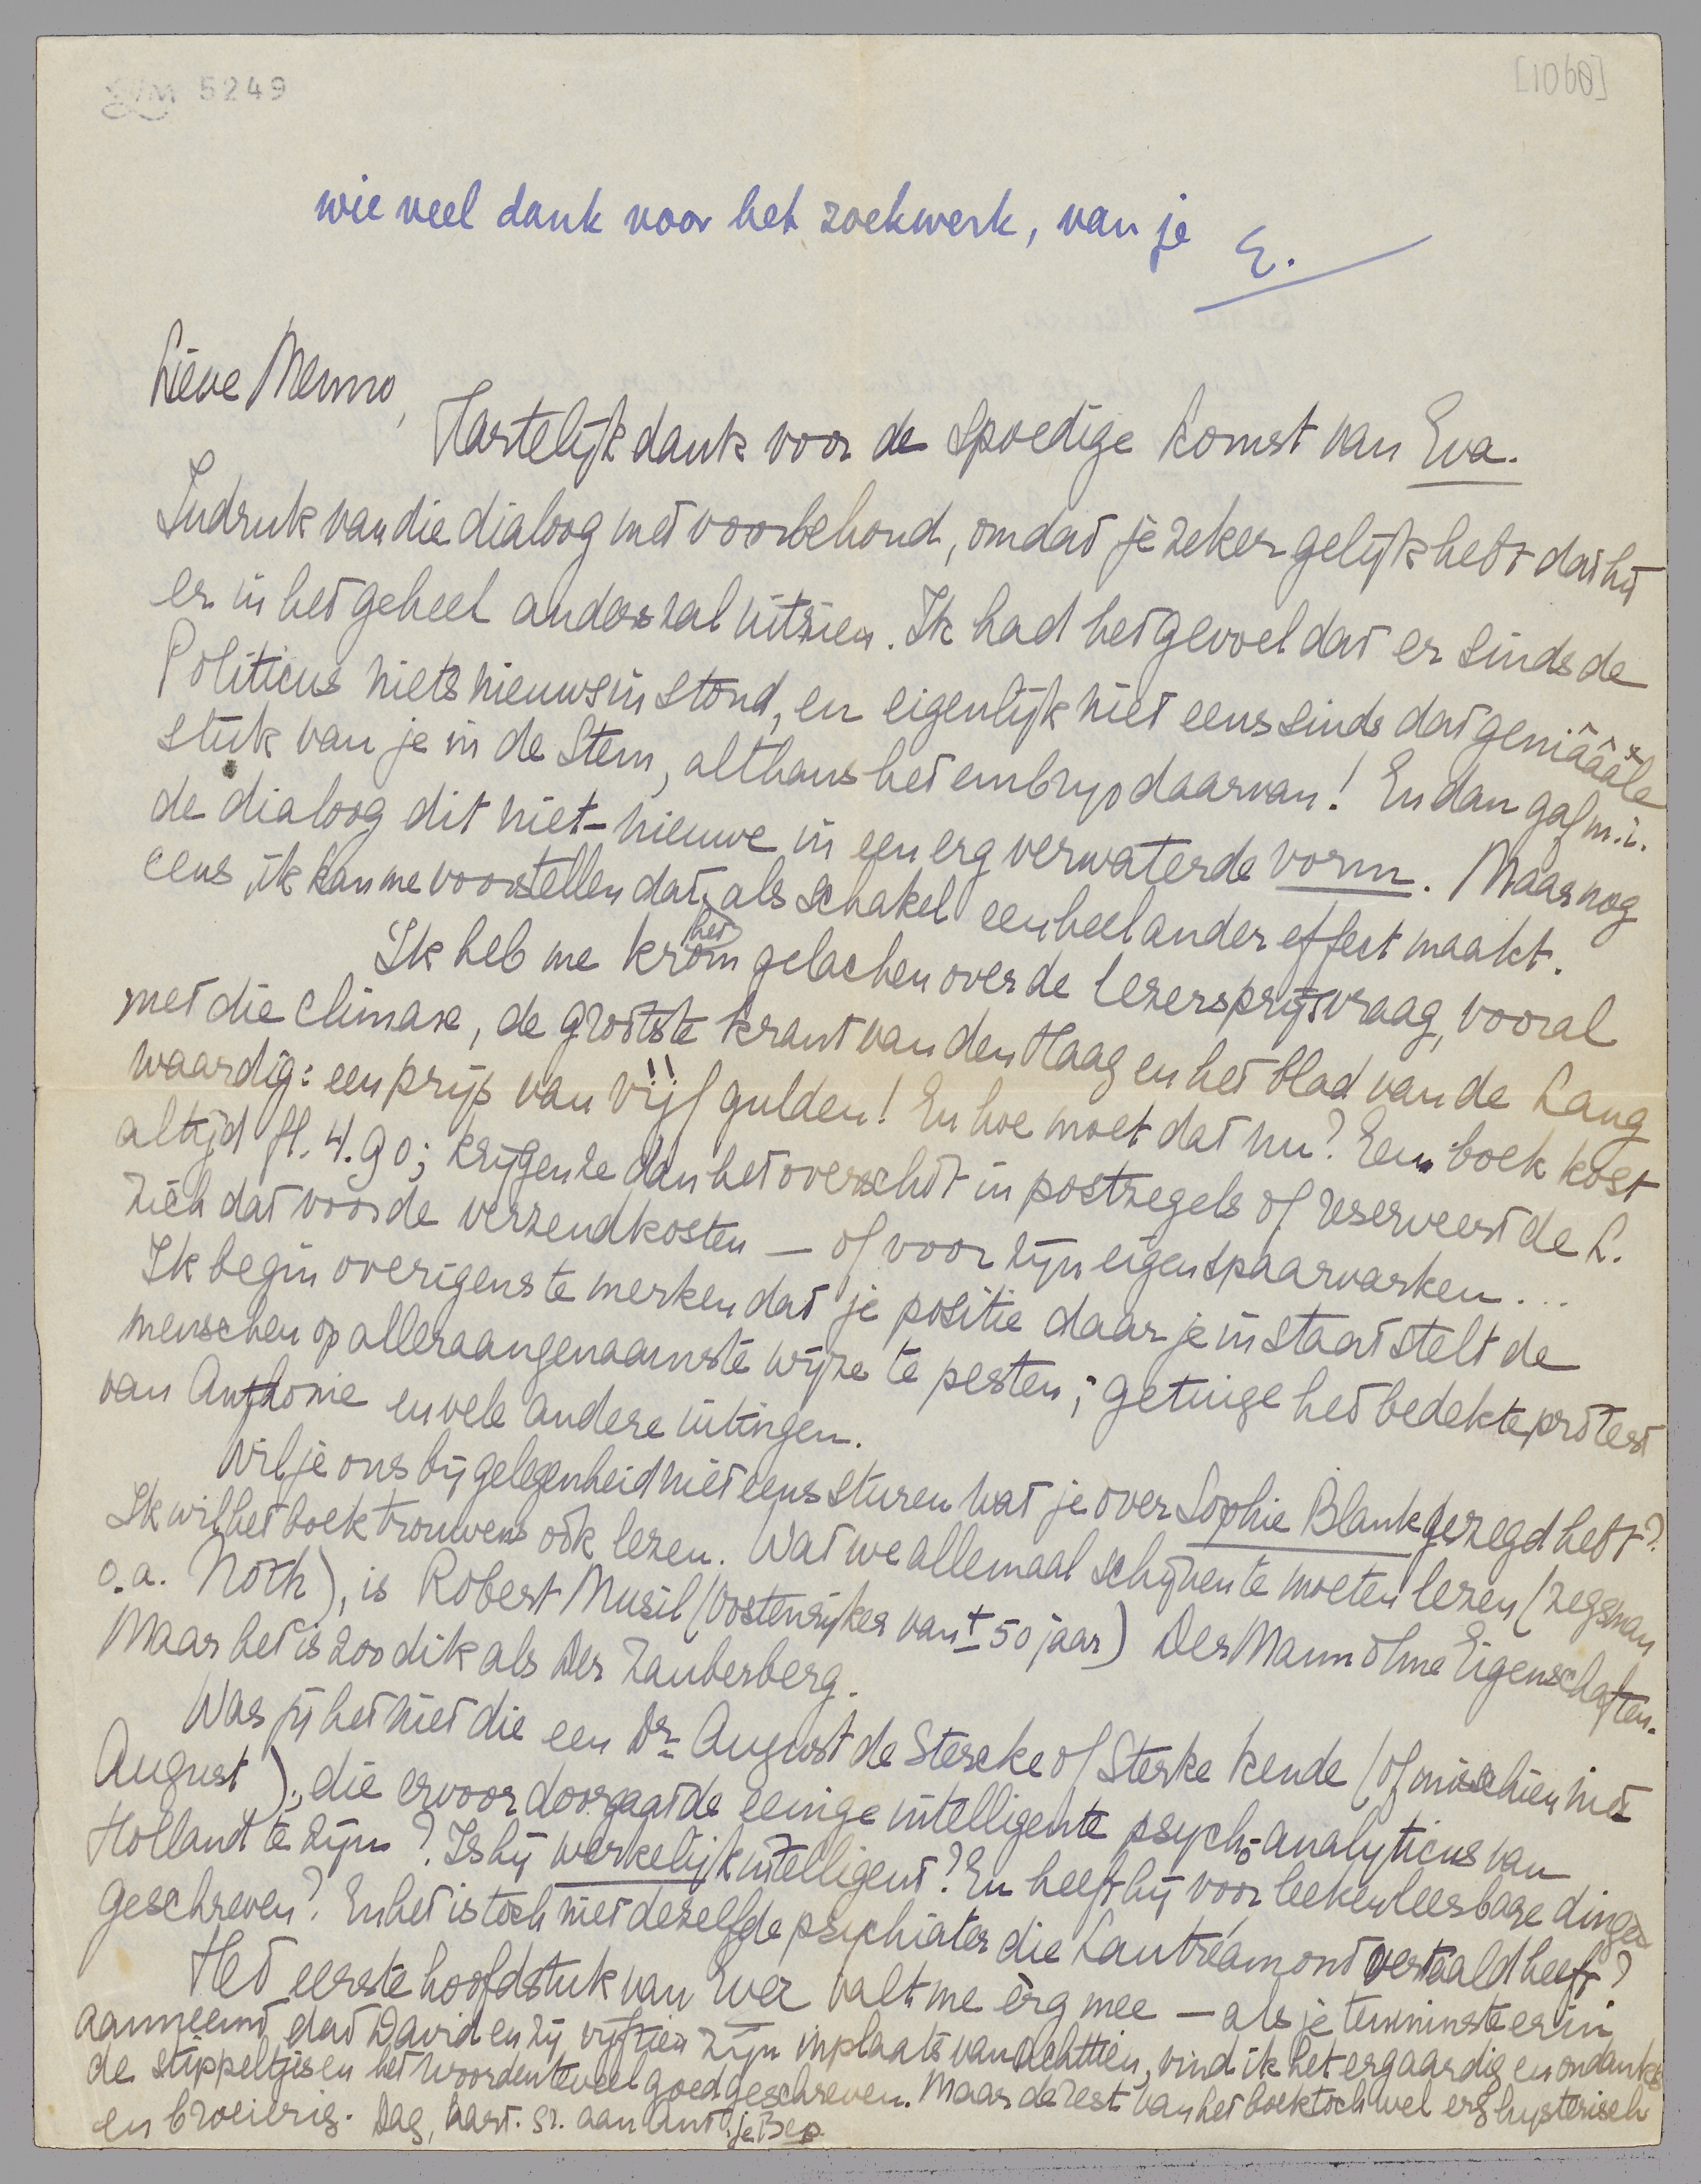 5249
[1060]
wie veel dank voor het zoekwerk, van je E.
Lieve Menno,
Hartelijk dank voor de spoedige komst van Eva.
Indruk van die dialoog met voorbehoud, omdat je zeker gelijk hebt dat het
er in het geheel anders zal uitzien. Ik had het gevoel dat er sinds de
Politicus niets nieuws in stond, en eigenlijk niet eens sinds dat geniâââle
stuk van je in de Stem, althans het embryo daarvan! En dan gaf m.i.
de dialoog dit niet-nieuwe in een erg verwaterde vorm. Maar nog
eens, ik kan me voorstellen dat het als schakel een heel ander effect maakt.
Ik heb me krom gelachen over de lezersprijsvraag, vooral
met die climax, de grootste krant van den Haag en het blad van de Lang
waardig: een prijs van vijf gulden! En hoe moet dat nu? Een boek kost
altijd fl. 4.90; krijgen ze dan het overschot in postzegels of reserveert de L.
zich dat voor de verzendkosten — of voor zijn eigen spaarvarken...
Ik begin overigens te merken dat je positie daar je in staat stelt de
menschen op alleraangenaamste wijze te pesten; getuige het bedekte protest
van Anthonie en vele andere uitingen.
Wil je ons bij gelegenheid niet eens sturen wat je over Sophie Blank gezegd hebt?
Ik wil het boek trouwens ook lezen. Wat we allemaal schijnen te moeten lezen (zegsman
o.a. Noth), is Robert Musil (Oostenrijker van ± 50 jaar) Der Mann ohne Eigenschaften.
Maar het is zoo dik als Der Zauberberg.
Was jij het niet die een Dr. August de Stercke of Sterke kende (of misschien niet
August), die ervoor doorgaat de eenige intelligente psych-analyticus van
Holland te zijn? Is hij werkelijk intelligent? En heeft hij voor leeken leesbare dingen
geschreven? En het is toch niet dezelfde psychiater die Lautréamont vertaald heeft?
Het eerste hoofdstuk van Eva valt me èrg mee — als je tenminste erin
aanneemt dat David en zij vijftien zijn inplaats van achttien, vind ik het erg aardig en ondanks
de stippeltjes en het woorden teveel goed geschreven. Maar de rest van het boek toch wel erg hysterisch
en broeierig. Dag, hart. gr. aan Ant. je Bep